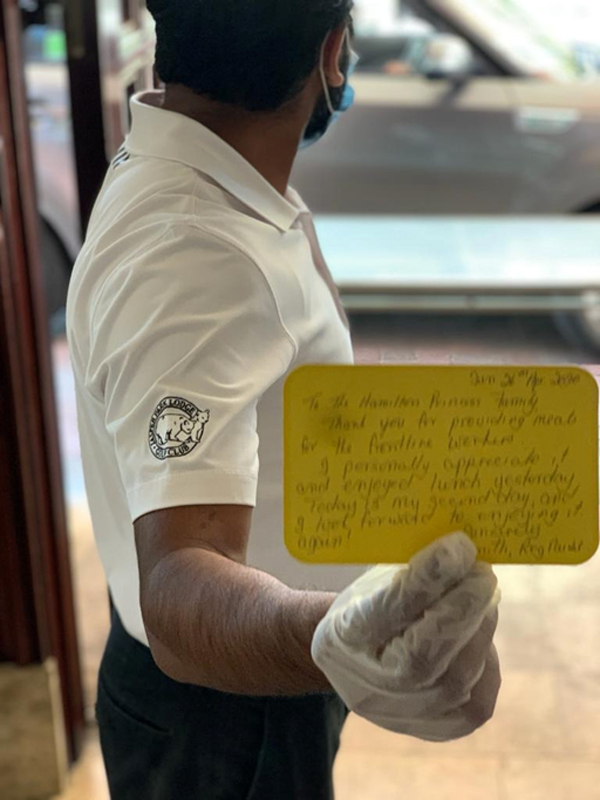 JASPER PARK LODGE
GOLF CLUB
Sun 26th Apr 2020
To the Hamilton Princess Family
Thank you for providing meals
for the frontline workers.
I personally appreciate it
and enjoyed lunch yesterday.
Today is my second day, and
I look forward to enjoying it
again!
Sincerely
Reg Nurse